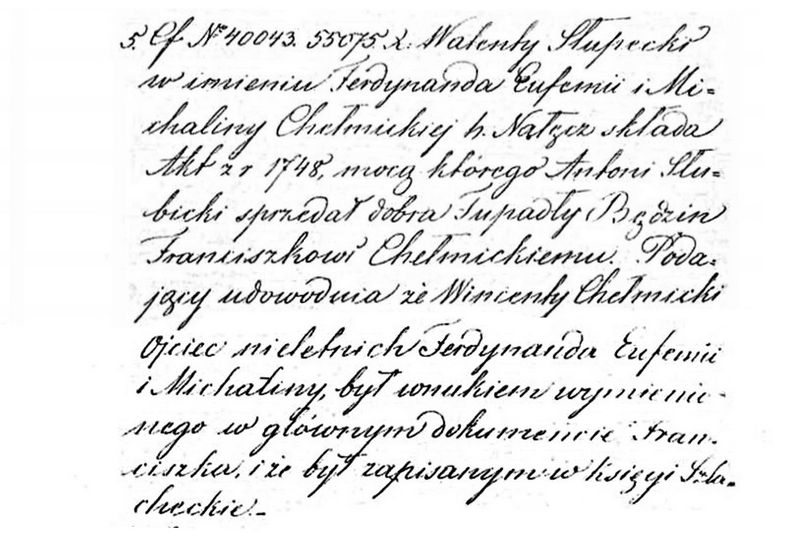 5. Cf Nº 40043. 55075. 2. Walenty Słupecki
w imieniu Ferdynanda Eufemii i Mi=
chaliny Chełmickiej h. Nałęcz składa
Akt z r 1748, mocą którego Antoni Słu=
bicki sprzedał dobra Tupadły Będzin
Franciszkowi Chełmickiemu. Poda=
jący udowodnia że Wincenty Chełmicki
Ojciec nieletnich Ferdynanda Eufemii
i Michaliny, był wnukiem wymienio-
nego w głównym dokumencie Fran-
ciszka, i że był zapisanym w księgi Szla-
checkie.-